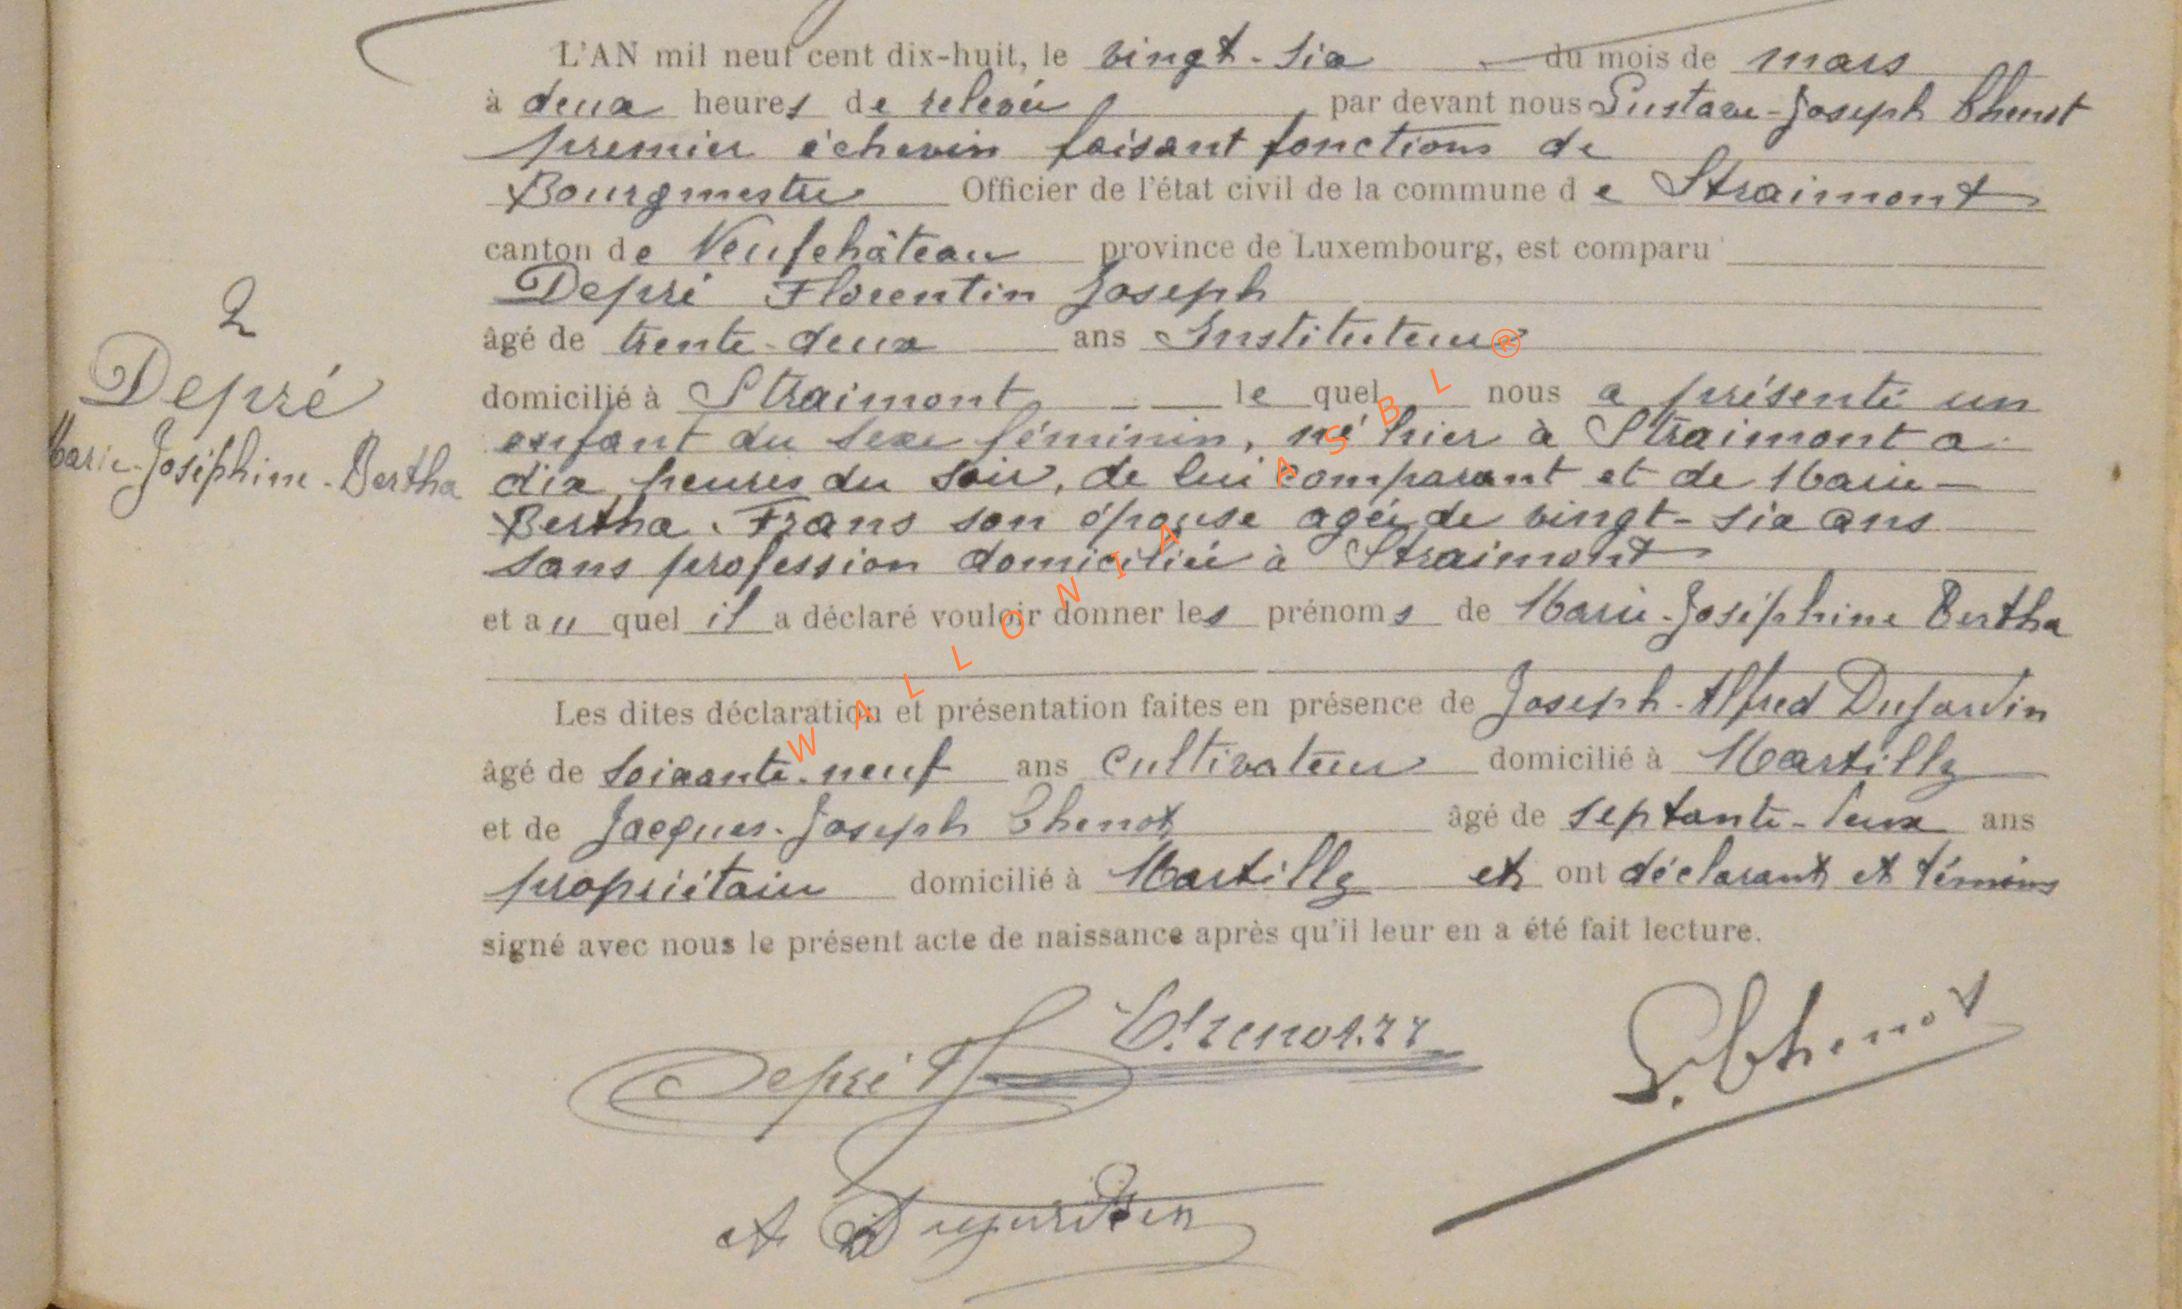 L'AN mil neuf cent dix-huit, le vingt-six du mois de mars
à deux heures de relevée par devant nous Gustave-Joseph Thenot
premier échevin faisant fonctions de
Bourgmestre Officier de l'état civil de la commune de Straimont
canton de Neufchâteau province de Luxembourg, est comparu
Depré Florentin Joseph
âgé de trente-deux ans Instituteur
domicilié à Straimont le quel nous a présenté un
enfant du sexe féminin, né hier à Straimont a
dix heures du soir, de lui comparant et de Marie-
Bertha Frans son épouse agée de vingt-six ans
sans profession domiciliée à Straimont
et au quel il a déclaré vouloir donner les prénoms de Marie-Joséphine Bertha
Les dites déclaration et présentation faites en présence de Joseph-Alfred Dujardin
âgé de soixante-neuf ans cultivateur domicilié à Martilly
et de Jacques-Joseph Thenot âgé de septante-deux ans
propriétaire domicilié à Martilly et ont déclarant et témoins
signé avec nous le présent acte de naissance après qu'il leur en a été fait lecture.
2
Depré
Marie-Joséphine-Bertha
Thenot.JJ
Depré F
G. Thenot
A Dujardin
WALLONIA ASBL®